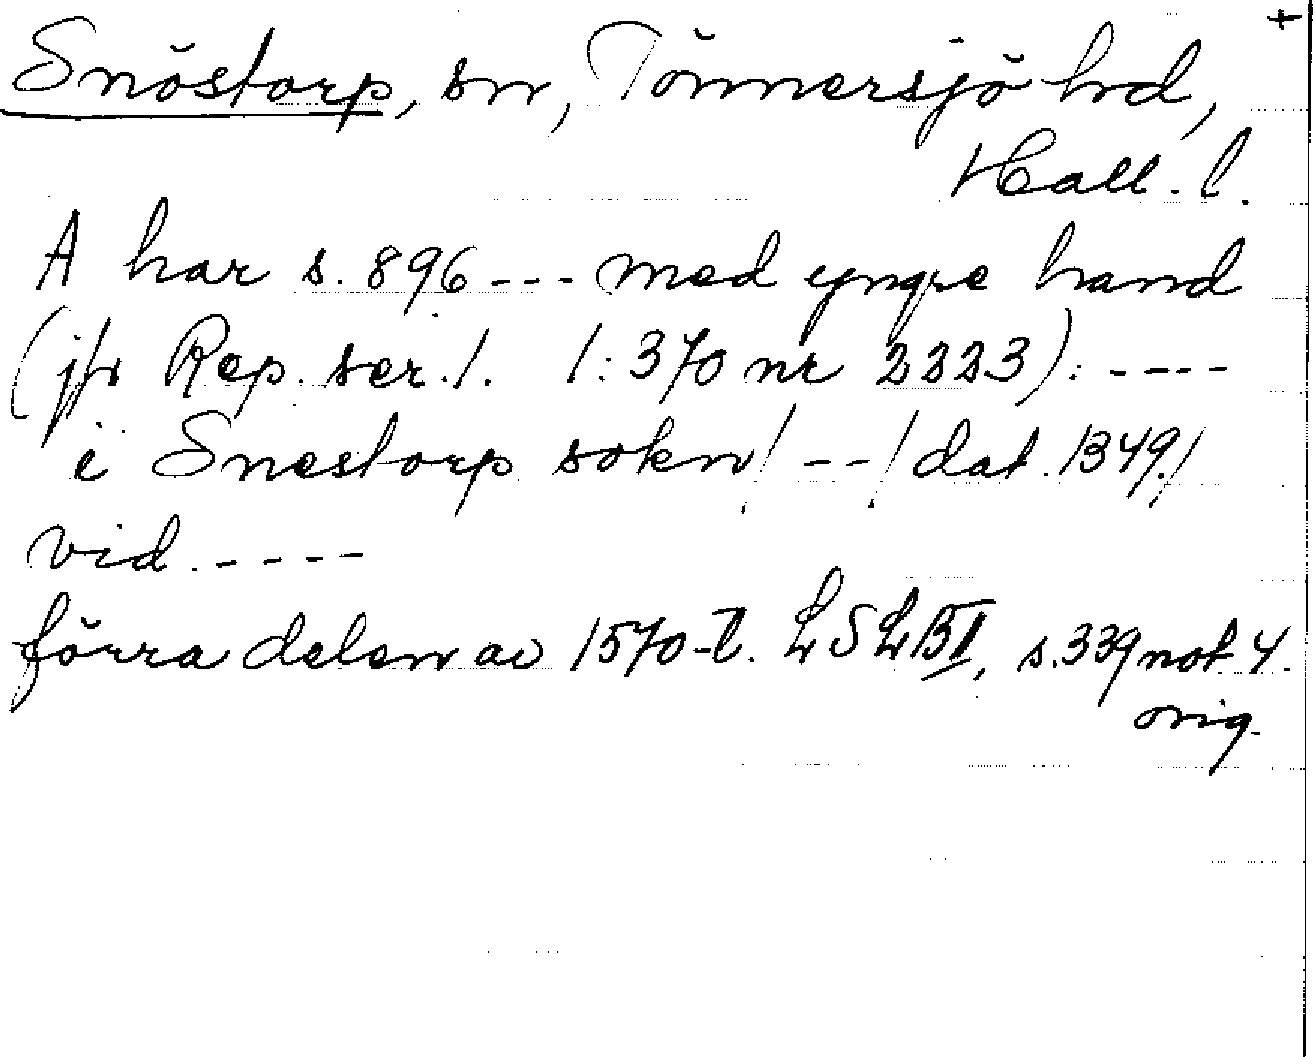 +
Snöstorp, sn, Tönnersjö hd,
Hall. l.
A har s. 896 --- med yngre hand
(jfr Rep. ser. 1. 1:370 nr 2223): ----
i Snestorp sokn/ --/dat. 1349/
vid. ----
förra delen av 1570-t. LSLB II, s. 339 not 4.
orig.